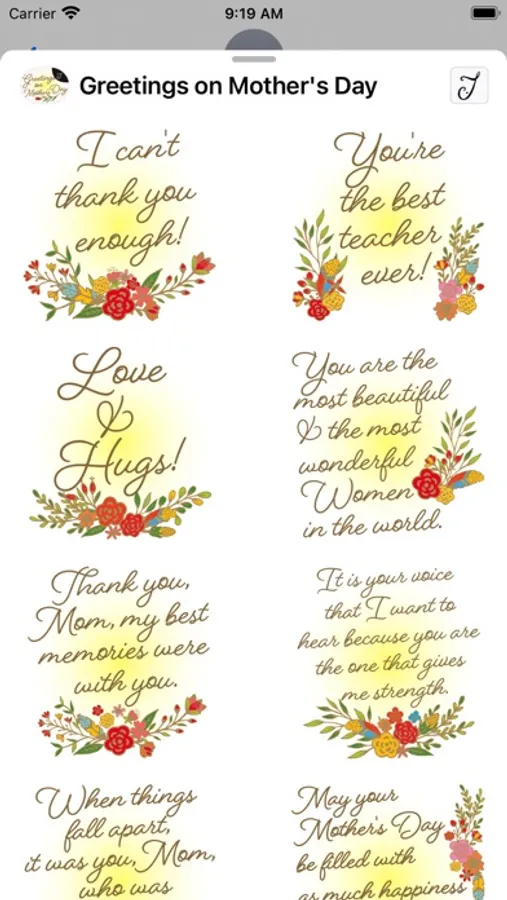 Carrier
9:19 AM
Greetings on Mother's Day
I can't
thank you
enough!
You're
the best
teacher
ever!
Love
&
Hugs!
You are the
most beautiful
& the most
wonderful
Women
in the world.
Thank you,
Mom, my best
memories were
with you.
It is your voice
that I want to
hear because you are
the one that gives
me strength.
When things
fall apart,
it was you, Mom,
who was
May your
Mother's Day
be filled with
as much happiness